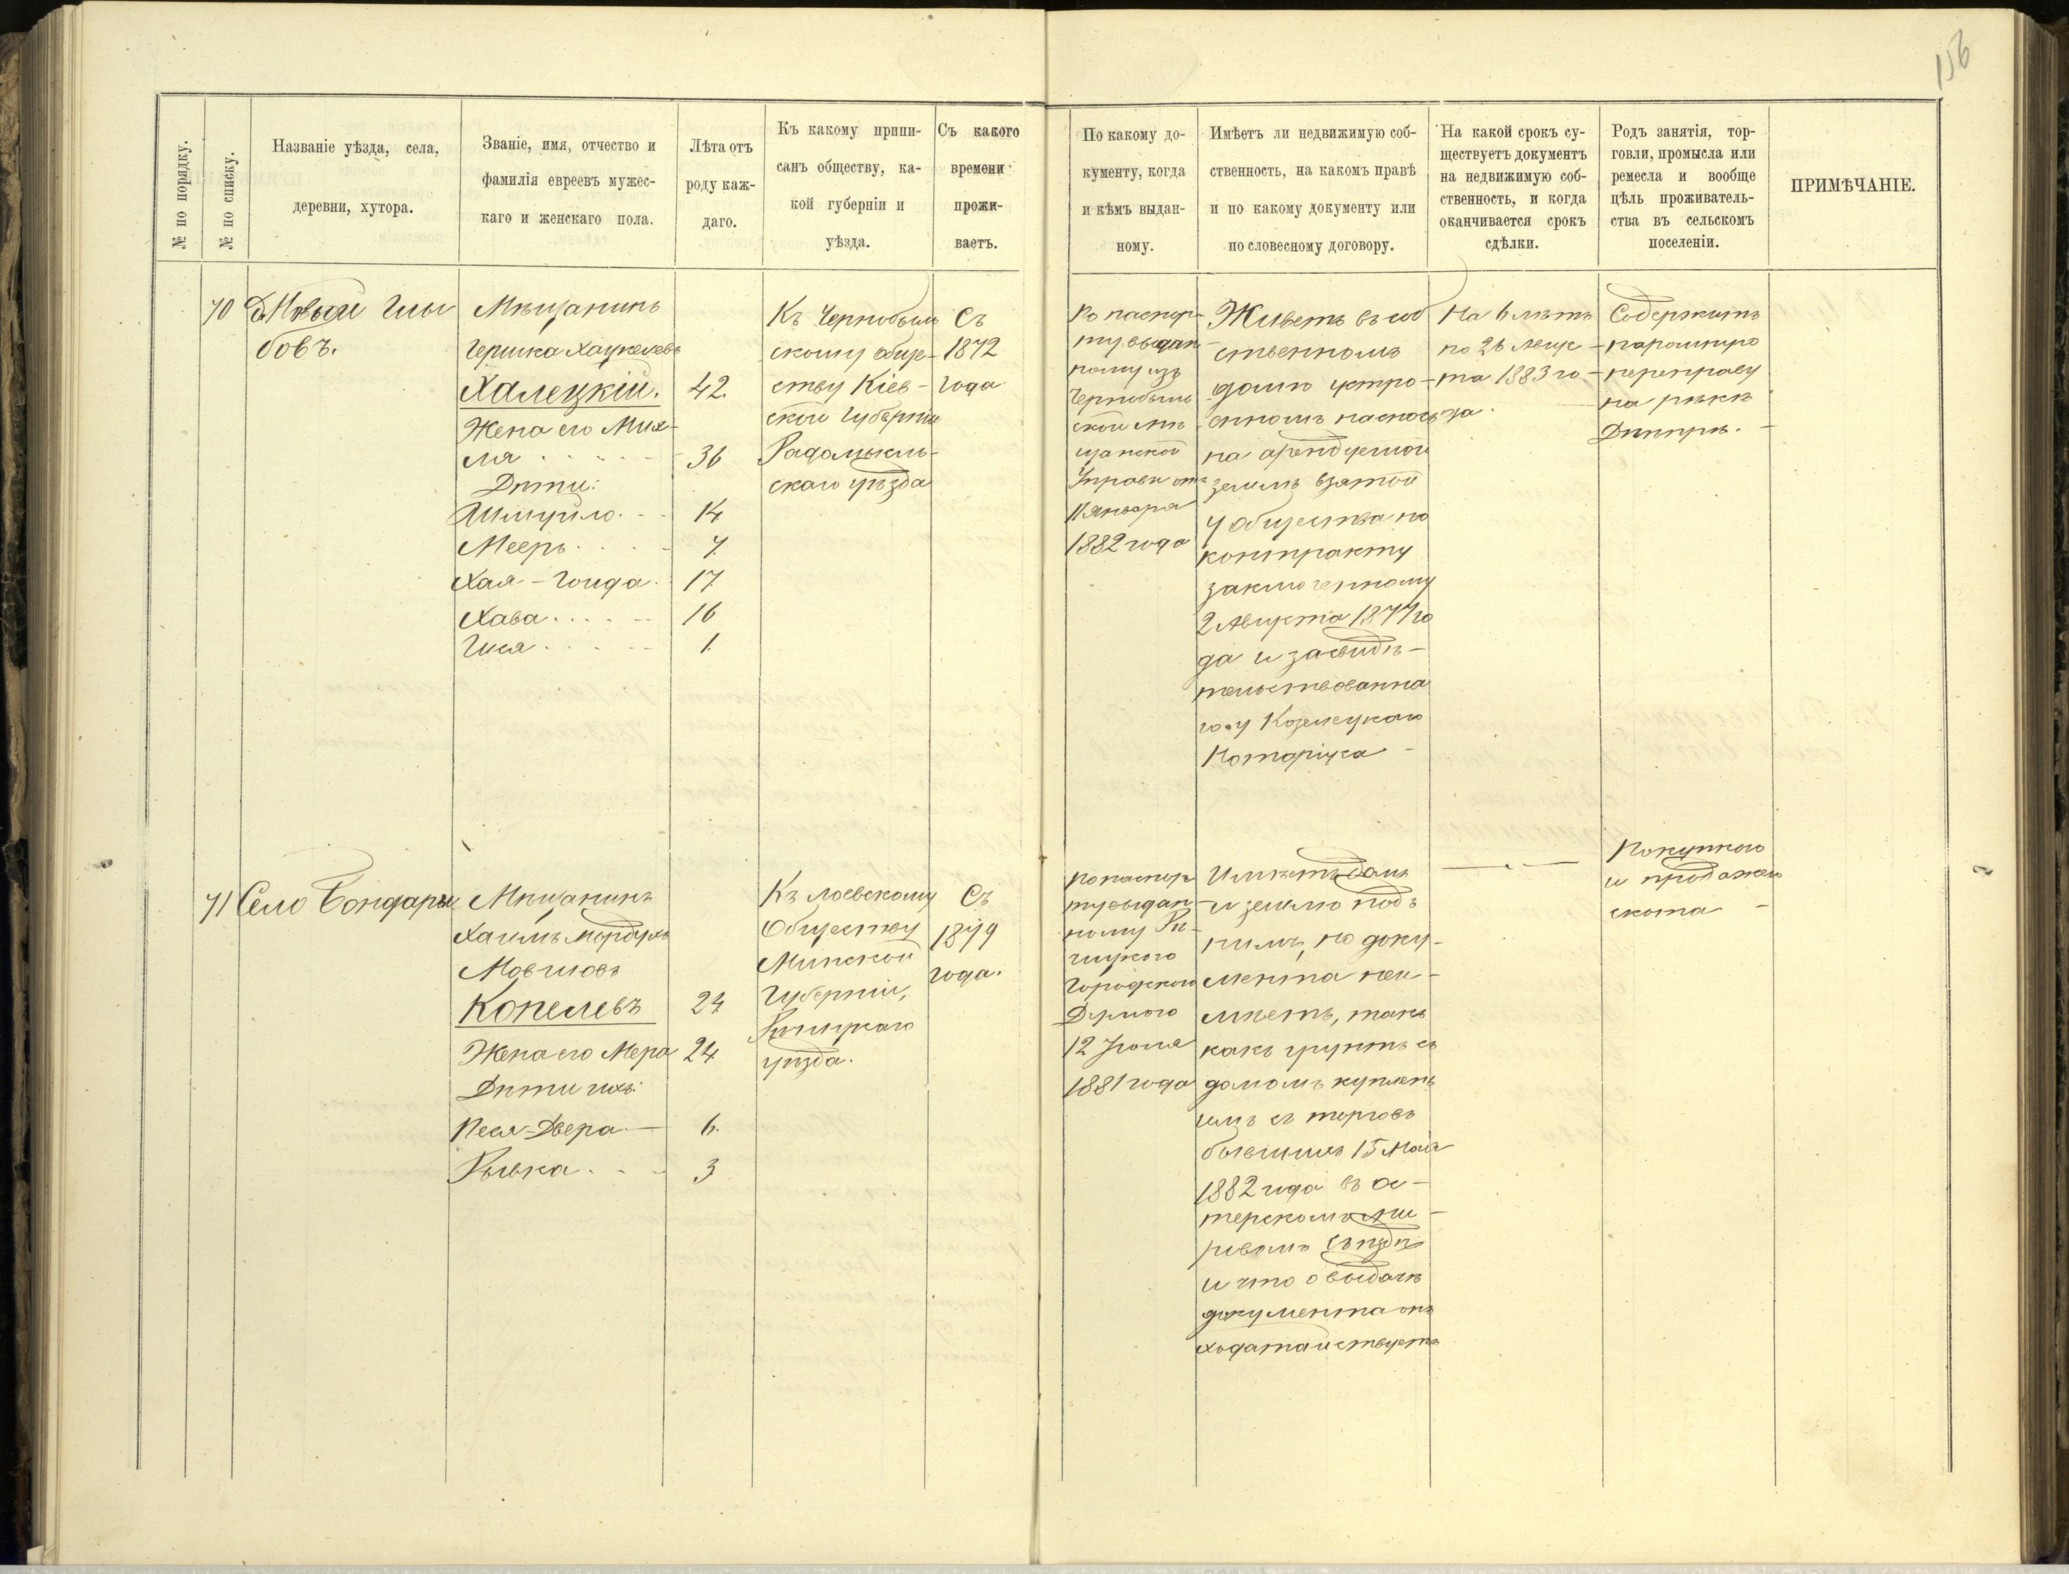 156
№ по порядку.
№ по списку.
Названіе уѣзда, села,
деревни, хутора.
Званіе, имя, отчество и
фамилія евреевъ мужес-
каго и женскаго пола.
Лѣта отъ
роду каж-
даго.
Къ какому припи-
санъ обществу, ка-
кой губерніи и
уѣзда.
Съ какого
времени
прожи-
ваетъ.
По какому до-
кументу, когда
и кѣмъ выдан-
ному.
Имѣетъ ли недвижимую соб-
ственность, на какомъ правѣ
и по какому документу или
по словесному договору.
На какой срокъ су-
ществуетъ документъ
на недвижимую соб-
ственность, и когда
оканчивается срокъ
сдѣлки.
Родъ занятія, тор-
говли, промысла или
ремесла и вообще
цѣль проживатель-
ства въ сельскомъ
поселеніи.
ПРИМѢЧАНІЕ.
70
д. Новый Глы
бовъ.
Мѣщанинъ
Гершка Хацкелевъ
Халецкій. 42.
Жена его Мих-
ля 36
Дѣти:
Шмуйло 14
Мееръ 7.
Хая-Гонда 17
Хава 16
Гися 1.
Къ Чернобыль
скому обще-
ству Кіев-
ской Губерніи
Радомысль-
скаго уѣзда
Съ
1872
года
По паспор-
ту выдан-
ному изъ
Чернобыль
ской мѣ-
щанской
Управы отъ
11 января
1882 года
Живетъ въ соб
ственномъ
домѣ устро-
енномъ
на арендуемой
землѣ взятой
у общества по
контракту
заключенному
2 Августа 1877 го
да и засвидѣ-
тельствованна
го у Козелецкаго
Нотаріуса
На 6 лѣтъ
по 26 Авгус-
та 1883 го-
да.
Содержитъ
паромную
переправу
на рѣкѣ
Днѣпрѣ.
71
Село Бондари
Мѣщанинъ
Хаимъ Мордухъ
Мовшовъ
Копелевъ 24
Жена его Мера 24
Дѣти ихъ:
Песя-Двера 6.
Рывка 3
Къ Лоевскому
Обществу
Минской
Губерніи,
Рѣчицкаго
уѣзда.
Съ
1879
года.
По паспор
ту выдан-
ному Рѣ-
чицкою
Городскою
Думою
12 Іюля
1881 года
Имѣетъ домъ
и землю подъ
нимъ, но доку-
мента не и-
мѣетъ, такъ
какъ грунтъ съ
домомъ купленъ
имъ съ торговъ
бывшихъ 15 Мая
1882 года въ Ос-
терскомъ ми-
ровомъ съѣздѣ
и что о выдачѣ
документа онъ
ходатайствуетъ
Покупкою
и продажею
скота